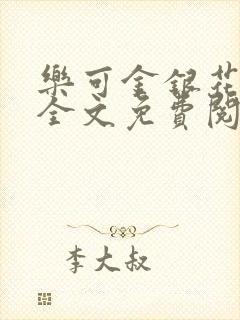 樂可金銀花
全文免費閱
李大叔